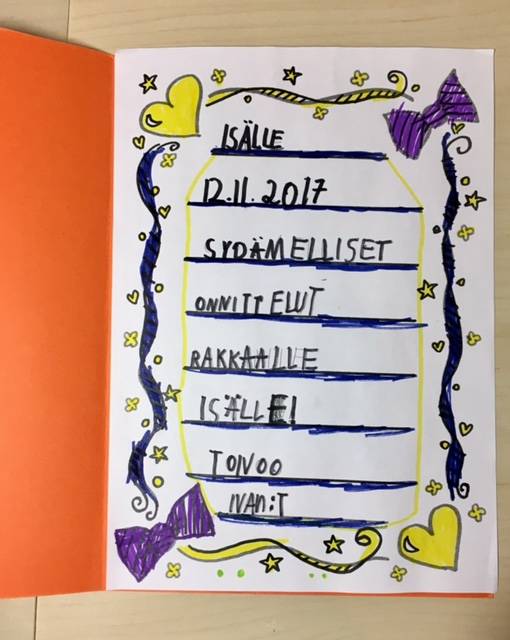 ISÄLLE
12.11.2017
SYDÄMELLISET
ONNITTELUT
RAKKAALLE
ISÄLLE!
TOIVOO
IVAN:T